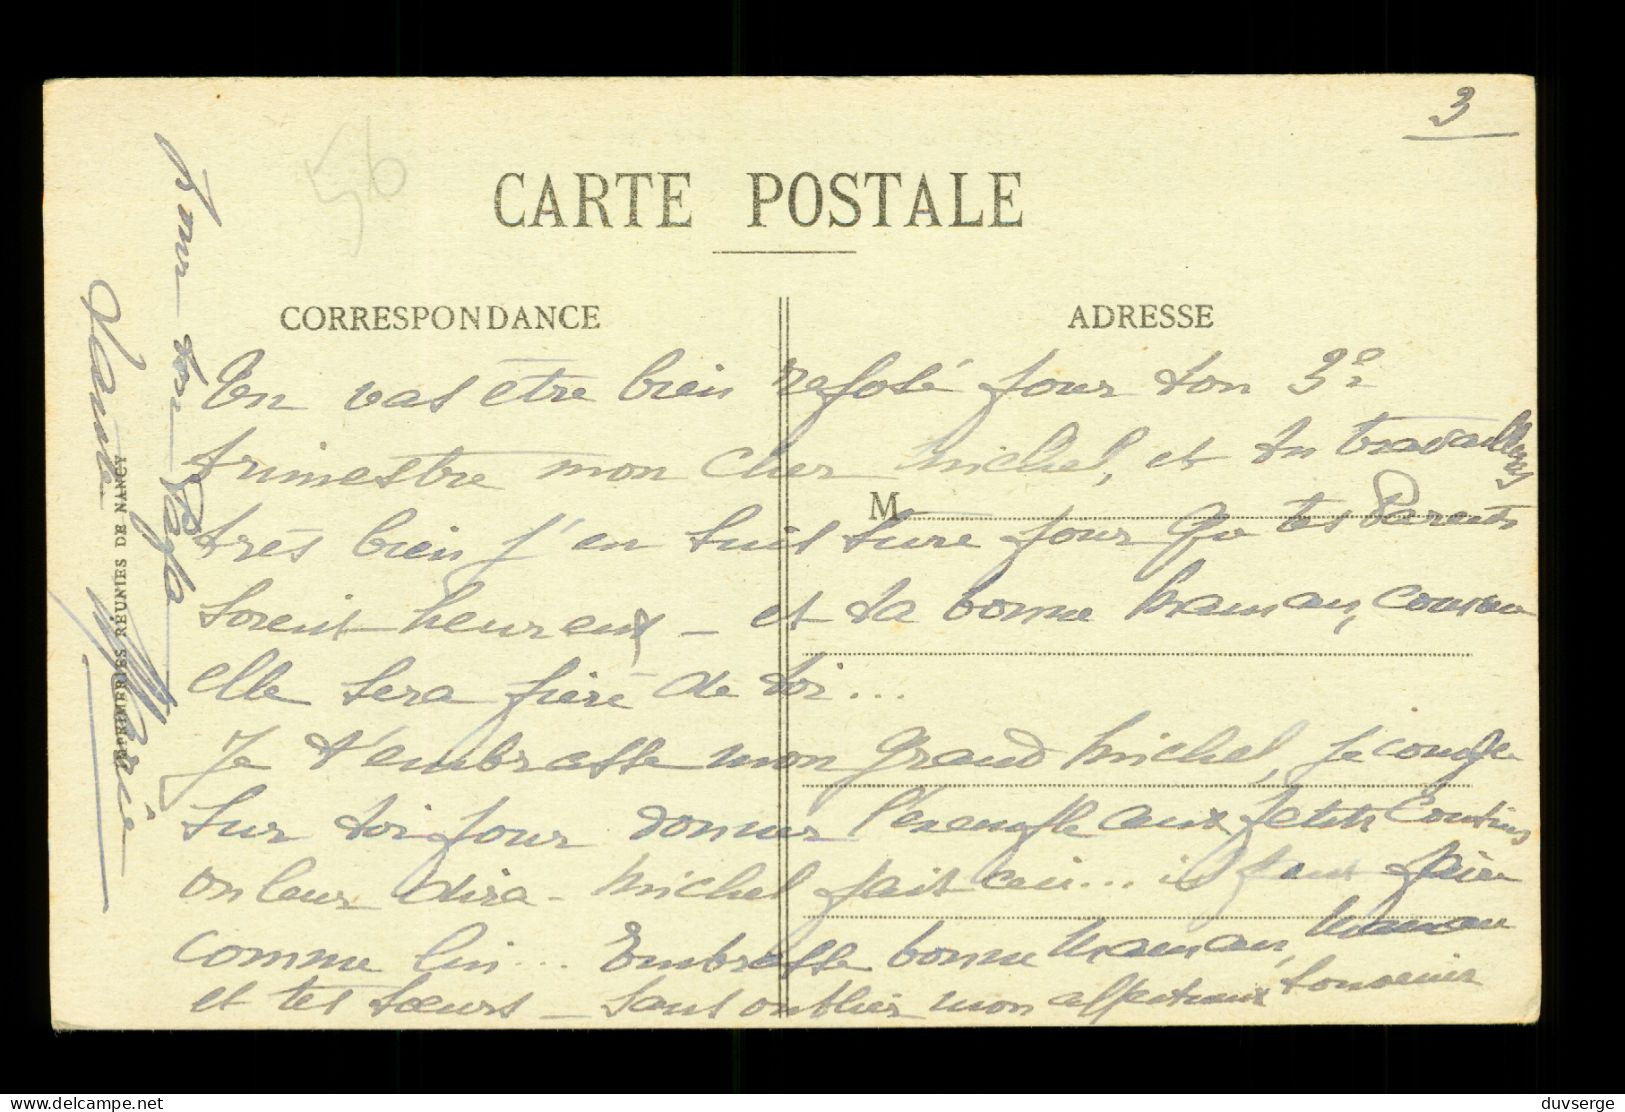 3
56
CARTE POSTALE
CORRESPONDANCE
ADRESSE
M
Tu vas être bien reposé pour ton 3e
trimestre mon cher Michel, et tu travailleras
très bien j'en suis sure pour que tes Parents
soient heureux - et ta bonne Maman, comme
elle sera fière de toi...
Je t'embrasse mon grand Michel, je compte
sur toi pour donner l'exemple aux petits cousins
on leur dira - Michel fait ceci... il faut faire
comme lui... Embrasse bonne Maman, Maman
et tes sœurs - sans oublier mon affectueux souvenir
pour ton Papa
Tante Marie
IMPRIMERIES RÉUNIES DE NANCY
www.delcampe.net
duvserge